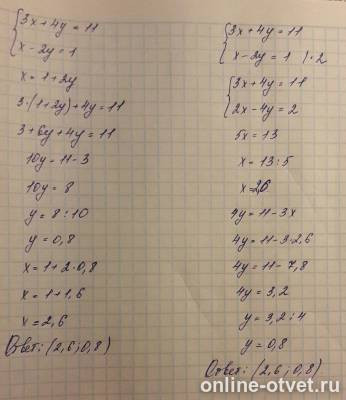 {3x + 4y = 11
x - 2y = 1
x = 1 + 2y
3·(1+2y) + 4y = 11
3 + 6y + 4y = 11
10y = 11 - 3
10y = 8
y = 8 : 10
y = 0,8
x = 1 + 2·0,8
x = 1 + 1,6
x = 2,6
Ответ: (2,6; 0,8)
{3x + 4y = 11
x - 2y = 1 |·2
{3x + 4y = 11
2x - 4y = 2
5x = 13
x = 13 : 5
x = 2,6
4y = 11 - 3x
4y = 11 - 3·2,6
4y = 11 - 7,8
4y = 3,2
y = 3,2 : 4
y = 0,8
Ответ: (2,6; 0,8)
online-otvet.ru